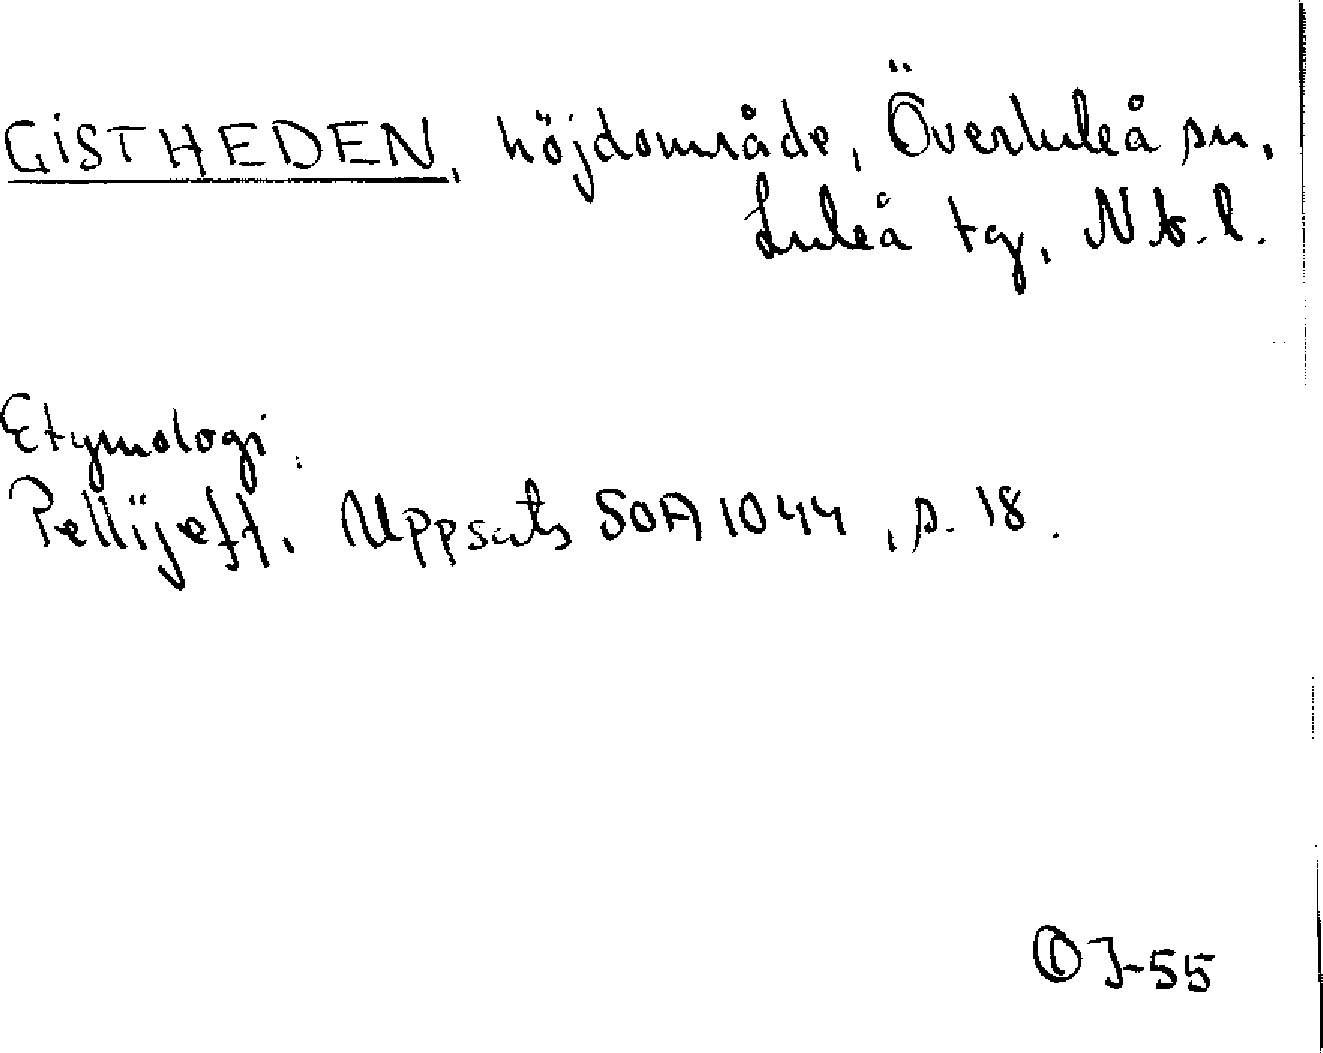 GISTHEDEN, höjdområde, Överluleå sn,
Luleå tg, Nb.l.
Etymologi.
Pellijeff, Uppsats SOA 1044, s. 18.
J-55